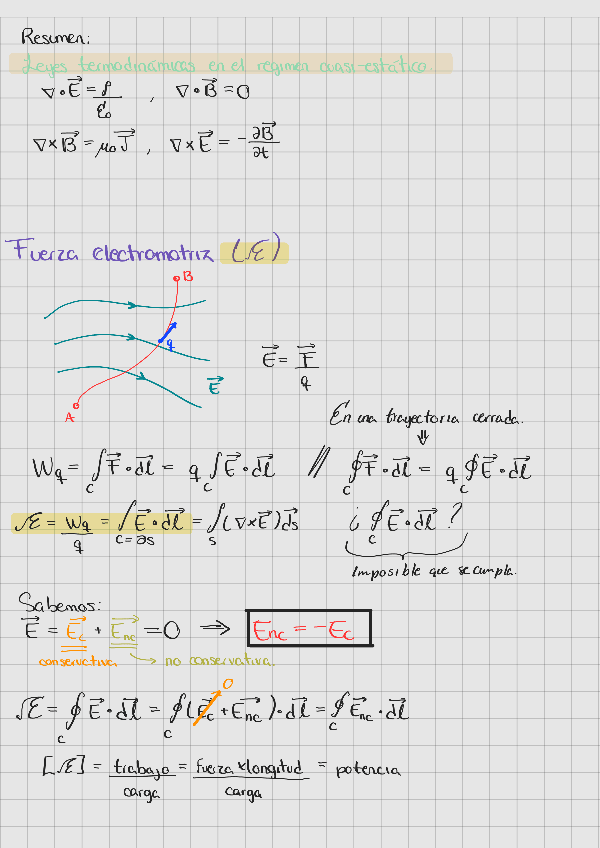 Resumen:
Leyes termodinámicas en el régimen cuasi-estático.
∇·E⃗ = ρ/ε₀ , ∇·B⃗ = 0
∇×B⃗ = μ₀J⃗ , ∇×E⃗ = -∂B⃗/∂t
Fuerza electromotriz (ℰ)
B
q
E⃗
A
E⃗ = F⃗/q
En una trayectoria cerrada.
⇓
W_q = ∫_C F⃗·dl⃗ = q ∫_C E⃗·dl⃗ // ∮_C F⃗·dl⃗ = q ∮_C E⃗·dl⃗
ℰ = W_q/q = ∫_{C=∂S} E⃗·dl⃗ = ∫_S (∇×E⃗) ds⃗ ¿ ∮_C E⃗·dl⃗ ?
Imposible que se cumpla.
Sabemos:
E⃗ = E⃗_c + E⃗_nc = 0 ⇒ E_nc = -E_c
conservativa → no conservativa.
0
ℰ = ∮_C E⃗·dl⃗ = ∮_C (E⃗_c + E⃗_nc)·dl⃗ = ∮_C E⃗_nc·dl⃗
[ℰ] = trabajo/carga = fuerza×longitud/carga = potencia